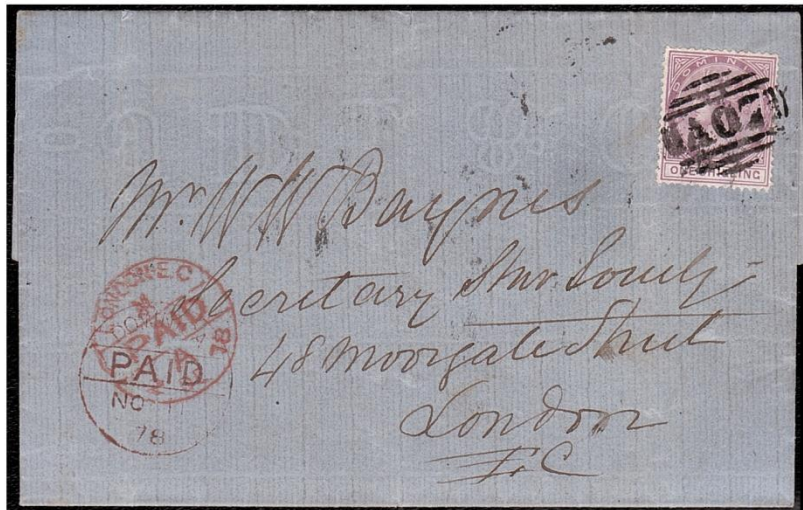 DOMINI
A07
ONE SHILLING
Mr W W Baynes
Secretary Star Society
48 Moorgate Street
London
E.C
LONDON E.C
PAID
78
DOMINICA
PAID
NO
78